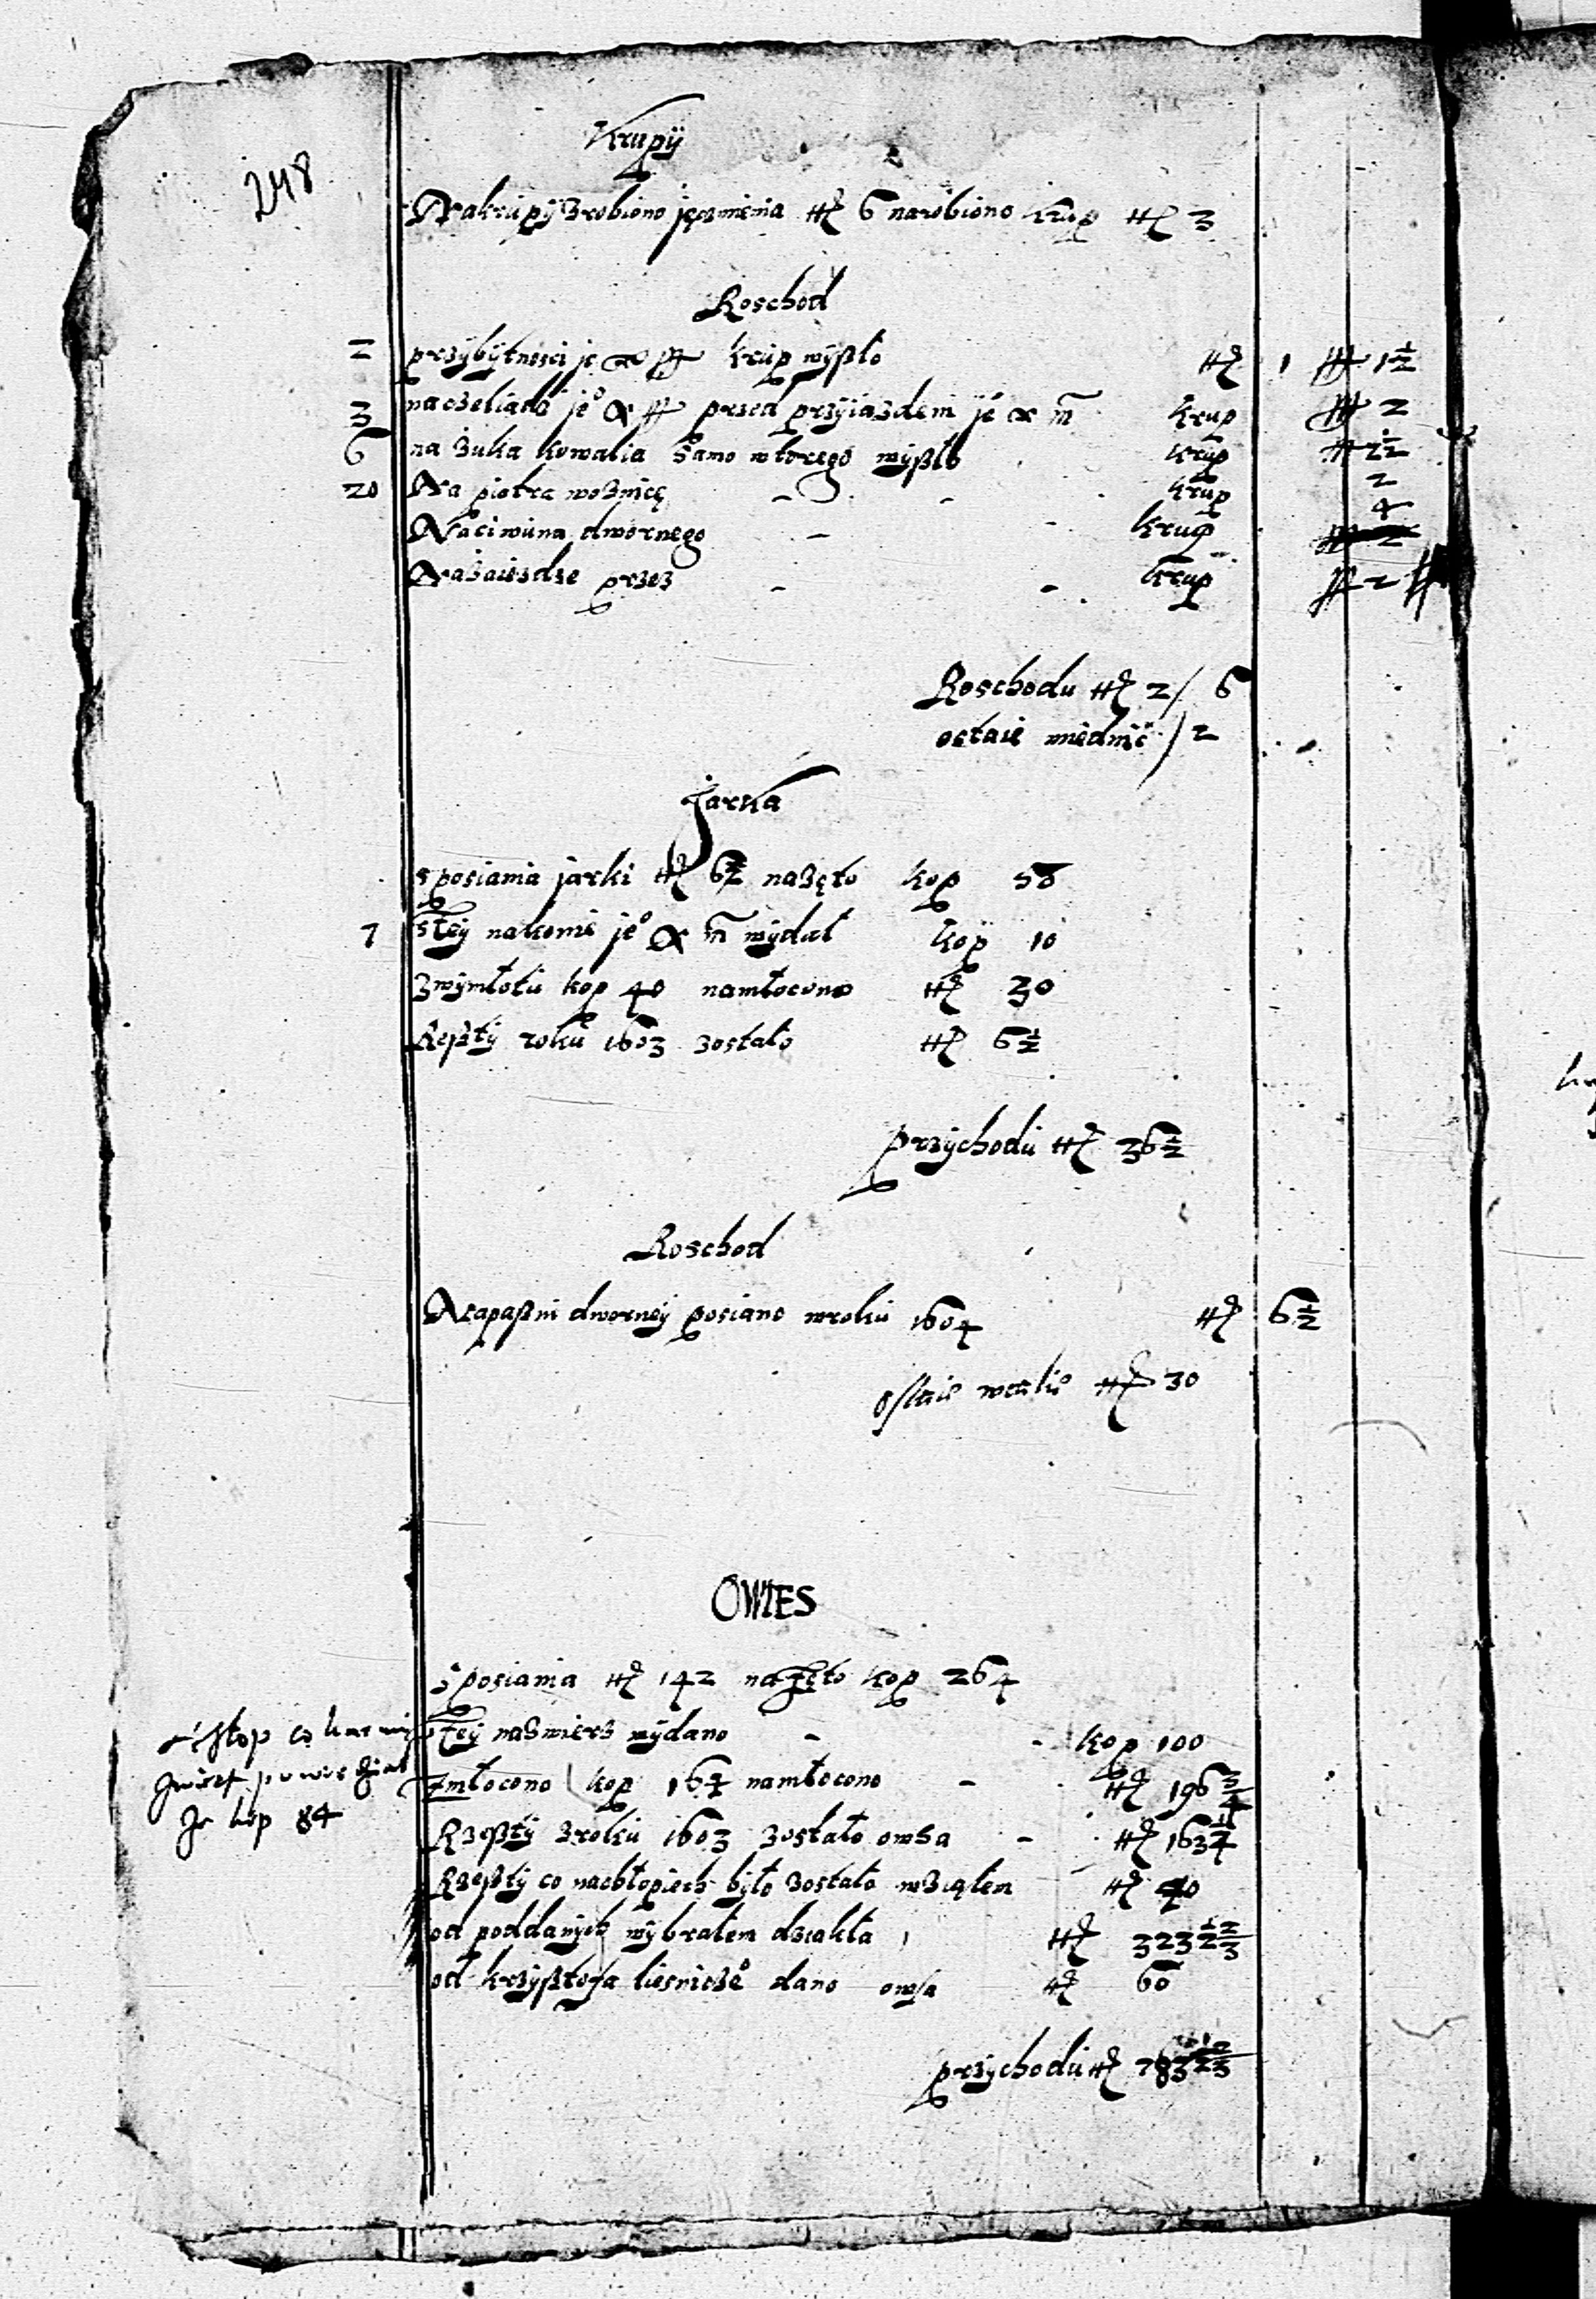 248
Krupÿ
Nakrupÿ zrobiono jęczmienia 6 narobiono krup 3
Roschod
2 przÿbÿtnosci je krup wÿßło 1 1½
3 naczeliadz je° przed przÿiazdem je° m krup 2
6 na żuka kowalia samo wtorego wÿßło krup 2½
20 Na piotra woznicę krup 2
Naciwuna dwornego krup 4
Nazaiezdzie przez krup 2
Roschodu 2/ 6
ostaie miednic / 2
Jarka
sposiania jarki 6½ nazęto kop 50
7 steÿ nakonie je° m wÿdał kop 10
zwÿmłotu kop 40 namłocono 30
Reßtÿ roku 1603 zostało 6½
przÿchodu 36½
Roschod
Napaßni dworneÿ posiano wroku 1604 6½
ostaie wcalie 30
OWIES
sposiania 142 nazęto kop 264
steÿ naswierz wÿdano kop 100
zmłocono kop 164 namłocono 196¾
Rzeßtÿ zroku 1603 zostało owsa 163¼
Rzeßtÿ co nachłopiech bÿło zostało wziąłem 40
powiedział
kop 84
od poddanÿch wÿbrałem dziakła 323½⅔
od krzÿßtofa liesnicze° dano owsa 60
przÿchodu 783½⅔